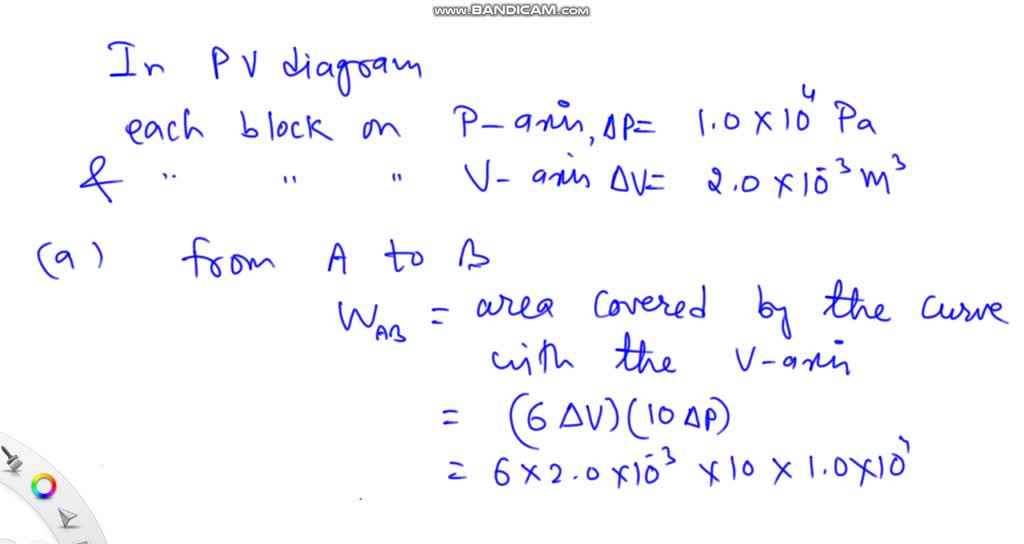 www.BANDICAM.com
In PV diagram
each block on P-axis, ΔP= 1.0 × 10⁴ Pa
& " " " V- axis ΔV= 2.0 × 10⁻³ m³
(a) from A to B
W_AB = area covered by the curve
with the V-axis
= (6 ΔV)(10 ΔP)
= 6 × 2.0 × 10⁻³ × 10 × 1.0 × 10⁴